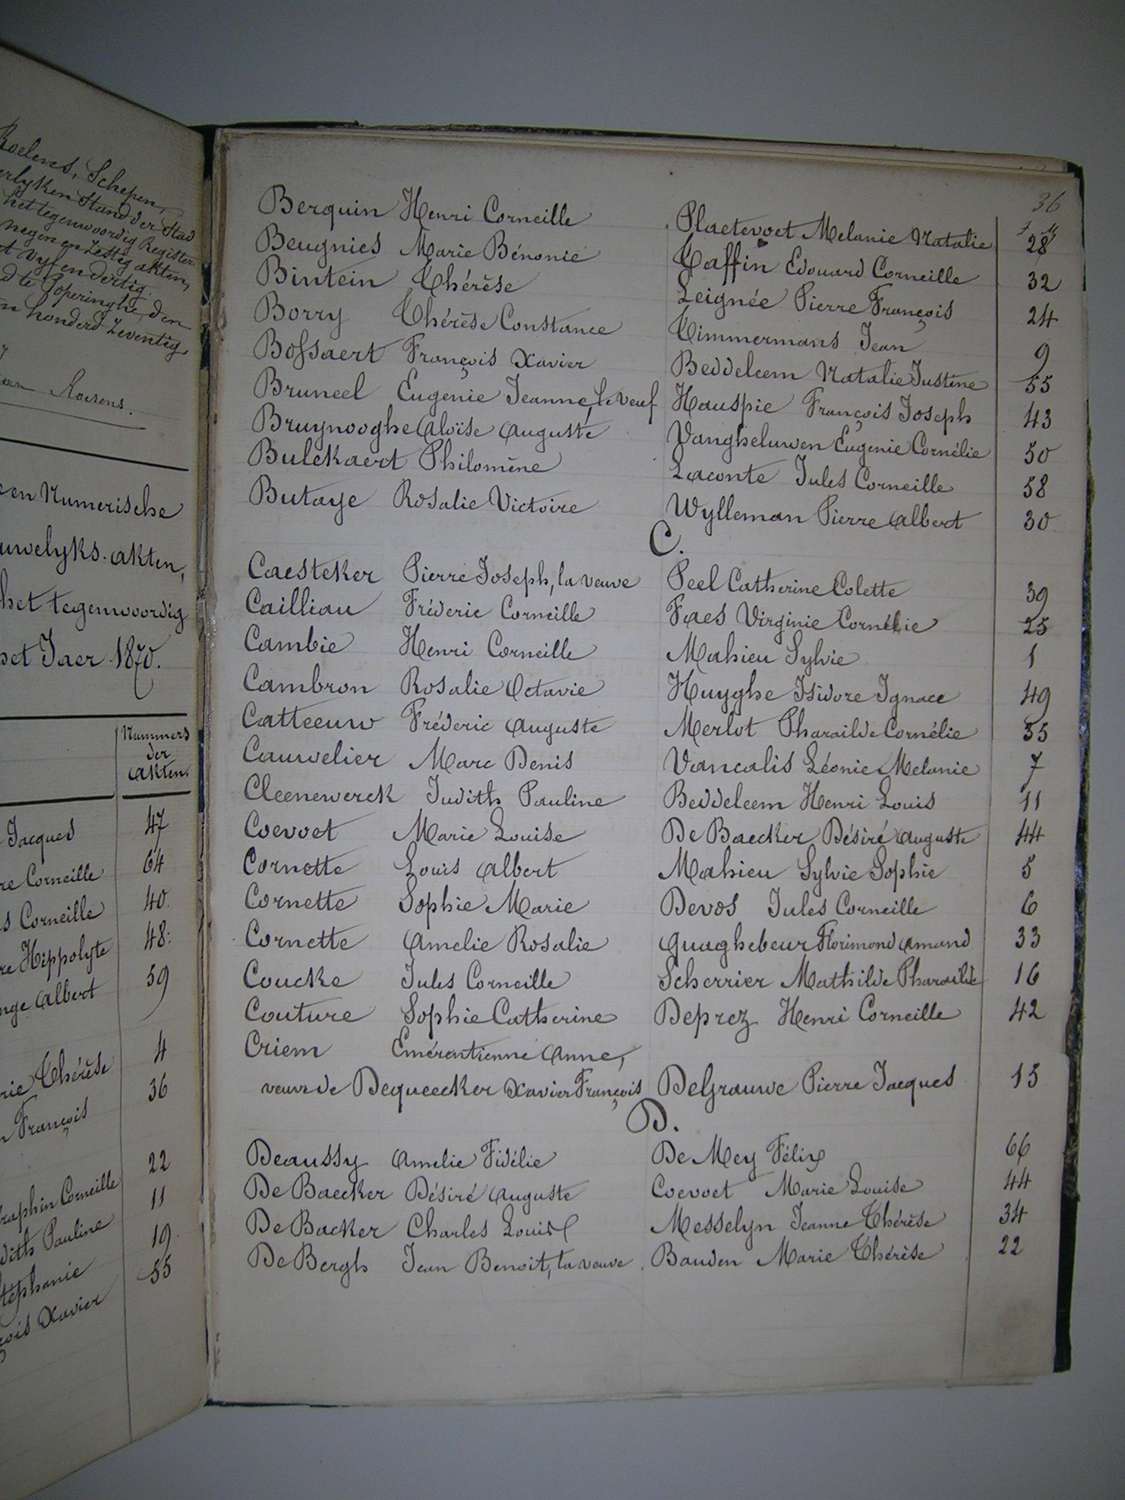 Roelens, Schepen,
erlyken Stand der Stad
het tegenwoordig Register
negen en zestig akten,
t vyf en dertig.
d te Poperinghe, den
n honderd zeventig
het tegenwoordig
en Numerische
uwelyks-akten,
het tegenwoordig
het Jaer 1870.
Nummers
der
akten.
Jacques 47
re Corneille 64
s Corneille 40.
re Hippolyte 48.
nge Albert 59
rie Thérèse 4
n François 36
raphin Corneille 22
dith Pauline 11
téphanie 19
çois Xavier 55
36
Berquin Henri Corneille Plaetevoet Melanie Natalie 28
Beugnies Marie Bénonie Taffin Edouard Corneille 32
Bintein Thérèse Leignée Pierre François 24
Borry Thérèse Constance Timmermans Jean 9
Bossaert François Xavier Beddeleem Natalie Justine 55
Bruneel Eugenie Jeanne, le veuf Hauspie François Joseph 43
Bruynooghe Aloïse Auguste Vangheluwen Eugenie Cornélie 50
Bulckaert Philomène Laconte Jules Corneille 58
Butaye Rosalie Victoire Wylleman Pierre Albert 30
C.
Caesteker Pierre Joseph, la veuve Peel Catherine Colette 39
Cailliau Fréderic Corneille Faes Virginie Cornélie 25
Cambie Henri Corneille Mahieu Sylvie 1
Cambron Rosalie Octavie Huyghe Isidore Ignace 49
Catteeuw Fréderic Auguste Merlot Pharaïlde Cornélie 35
Cauwelier Marc Denis Vancalis Léonie Melanie 7
Cleenewerck Judith Pauline Beddeleem Henri Louis 11
Coevoet Marie Louise De Baecker Désiré Auguste 44
Cornette Louis Albert Mahieu Sylvie Sophie 5
Cornette Sophie Marie Devos Jules Corneille 6
Cornette Amelie Rosalie Quaghebeur Florimond Amand 33
Coucke Jules Corneille Scherrier Mathilde Pharaïlde 16
Couture Sophie Catherine Deprez Henri Corneille 42
Criem Emérentienne Anne,
veuve de Dequeecker Xavier François DeGrauwe Pierre Jacques 15
D.
Deaussy Amelie Fidélie De Mey Félix 66
De Baecker Désiré Auguste Coevoet Marie Louise 44
De Backer Charles Louis Messelyn Jeanne Thérèse 34
De Bergh Jean Benoit, la veuve Bauden Marie Thérèse 22